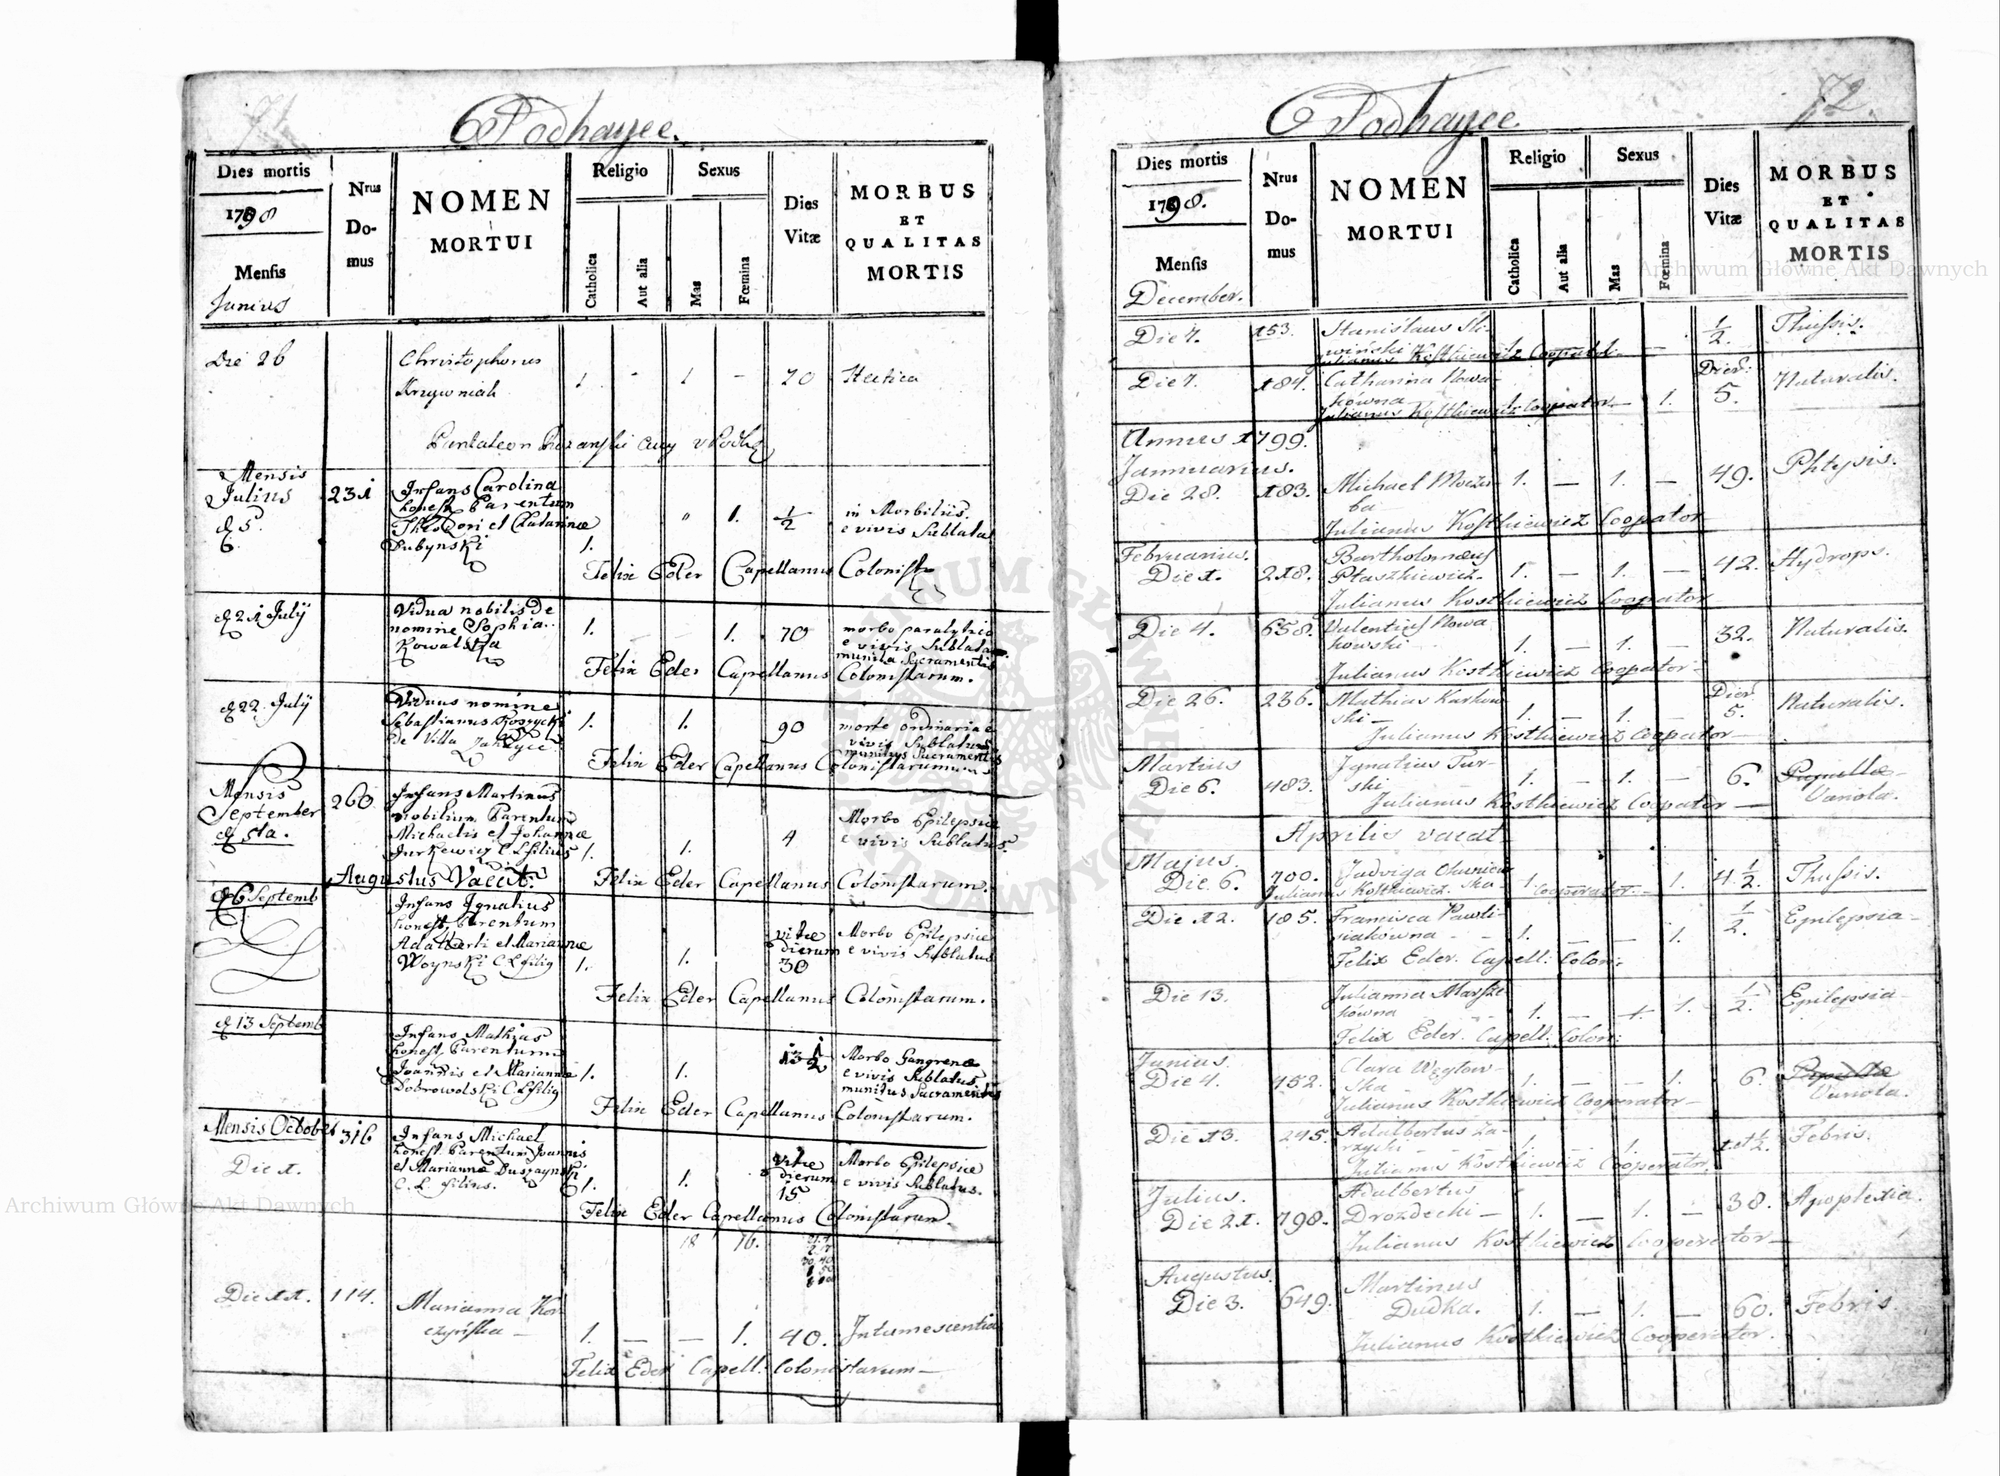 71
Podhayce.
Dies mortis
1798
Mensis
Junius
Nrus
Do-
mus
NOMEN
MORTUI
Religio
Catholica
Aut alia
Sexus
Mas
Fœmina
Dies
Vitæ
MORBUS
ET
QUALITAS
MORTIS
Die 26
Christophorus
Krzywniak
1 - 1 - 70 Hectica
Pantaleon
Mensis
Julius 231 Infans Carolina
honest Parentum
d 5 Theodori et Catharinæ " 1. 1/2 in Morbilis
6. Dubynski 1. e vivis Sublata
Felix Eder Capellanus
d 21 July Vidua nobilis de
nomine Sophia 1. 1. 70 morbo paralytico
Kowalska e vivis Sublata
munita Sacramentis
Felix Eder Capellanus Colonistarum.
d 22 July Viduus nomine
Sebastianus 1. 1. 90 morte ordinaria e
de Villa vivis Sublatus
munitus Sacramentis
Felix Eder Capellanus Colonistarum
Mensis
September 260 Infans Martinus
d 5ta. Nobilium Parentum
Michaelis et Johannæ 4 Morbo Epilepsiæ
Jurkewicz C L filius 1. 1. e vivis Sublatus.
Augustus Vacat. Felix Eder Capellanus Colonistarum.
d 6 Septemb Infans Ignatius
honest Parentum
Adalberti et Mariannæ vitæ Morbo Epilepsiæ
Woynski C L filig 1. 1. dierum e vivis Sublatus
30
Felix Eder Capellanus Colonistarum.
d 13 Septemb Infans Mathias
honest Parentum
Joannis et Mariannæ 1. 1. Morbo Gangrenæ
Dobrowolski C L filig e vivis Sublatus
munitus Sacramentis
Felix Eder Capellanus Colonistarum.
Mensis October 316 Infans Michael
honest Parentum Joannis
Die 1. et Mariannæ vitæ Morbo Epilepsiæ
C. L filius. 1. 1. dierum e vivis Sublatus.
15
Felix Eder Capellanus Colonistarum.
18 16.
Die 11. 114. Marianna Kor
czyńska 1. — — 1. 40. Intumescentia
Felix Eder Capell: Colonistarum —
72
Podhayce
Dies mortis
1798.
Mensis
December.
Nrus
Do-
mus
NOMEN
MORTUI
Religio
Catholica
Aut alia
Sexus
Mas
Fœmina
Dies
Vitæ
MORBUS
ET
QUALITAS
MORTIS
Die 7. 153. Stanislaus Sli-
winski 1/2. Thussis.
Julianus Kostkiewicz Cooperator.
Die 7. 184. Catharina Nowa-
kówna 1. Dier. 5. Naturalis.
Julianus Kostkiewicz Cooperator
Annus 1799.
Jannuarius.
Die 28. 183. Michael
ba 1. — 1. — 49. Phtysis.
Julianus Kostkiewicz Coopator
Februarius. Bartholomeus
Die 1. 218. Ptaszkiewicz. 1. — 1. — 42. Hydrops.
Julianus Kostkiewicz Coopator
Die 4. 658. Valentius Nowa
kowski 1. — 1. — 32. Naturalis.
Julianus Kostkiewicz Coopator
Die 26. 236. Mathias Karkow
ski — 1. — 1. — Dier. 5. Naturalis.
Julianus Kostkiewicz Coopator —
Martius Ignatius Tur-
Die 6. 483. ski 1. — 1. — 6. Variola.
Julianus Kostkiewicz Coopator —
Aprilis vacat
Majus.
Die 6. 700. Jadviga
ska 1. 1. 4 1/2. Thussis.
Julianus Kostkiewicz Cooperator
Die 12. 185. Francisca Pawli-
siakówna 1. — — 1. 1/2. Epilepsia
Felix Eder. Capell: Colon:
Die 13. Julianna
kowna 1. — 1. 1/2. Epilepsia
Felix Eder. Capell: Colon:
Junius. Clara Węglow-
Die 4. 452. ska 1. — — 1. 6. Variola.
Julianus Kostkiewicz Cooperator —
Die 13. 245. Adalbertus Za-
rzycki 1. 1. 1 et 1/2. Febris.
Julianus Kostkiewicz Cooperator.
Julius. Adalbertus
Die 21. 798. Drozdecki — 1. — 1. — 38. Apoplexia.
Julianus Kostkiewicz Cooperator —
Augustus. Martinus
Die 3. 649. Dudka. 1. — 1. — 60. Febris
Julianus Kostkiewicz Cooperator.
Archiwum Główne Akt Dawnych
Archiwum Główne Akt Dawnych
ARCHIWUM GŁÓWNE AKT DAWNYCH